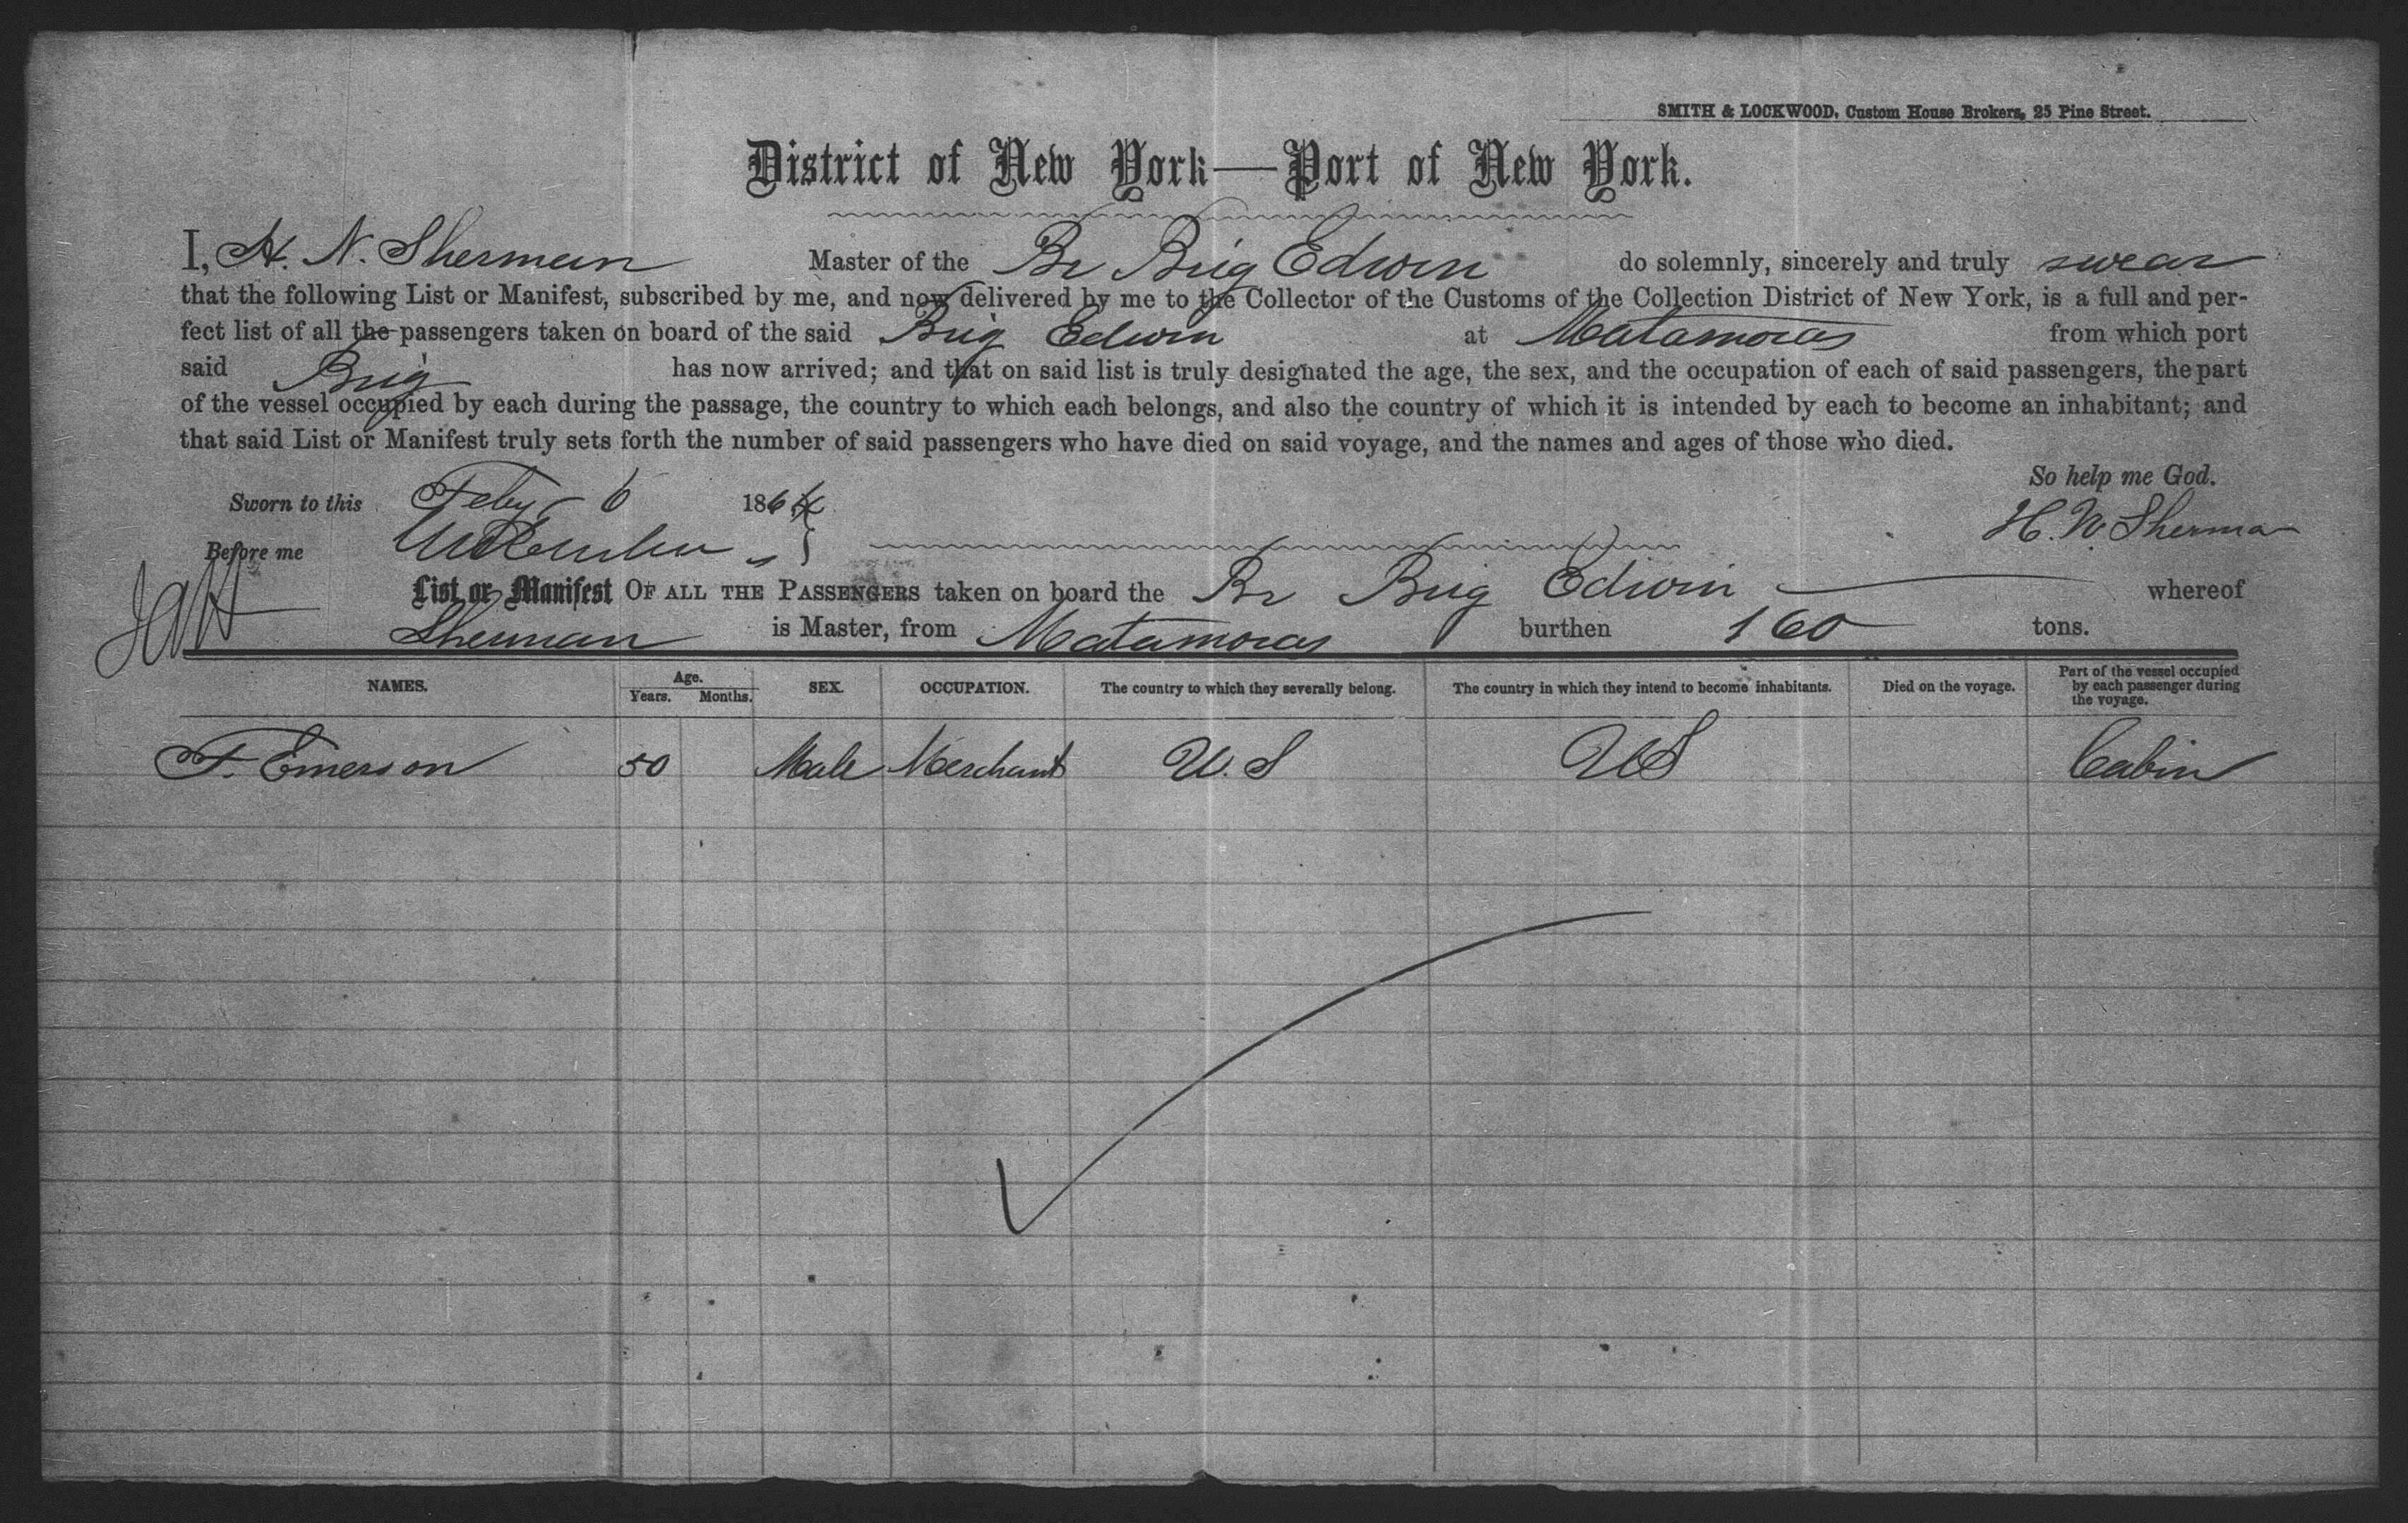 SMITH & LOCKWOOD, Custom House Brokers, 25 Pine Street.
District of New York—Port of New York.
I, H. N. Sherman Master of the Br Brig Edwin do solemnly, sincerely and truly swear
that the following List or Manifest, subscribed by me, and now delivered by me to the Collector of the Customs of the Collection District of New York, is a full and per-
fect list of all the passengers taken on board of the said Brig Edwin at Matamoras from which port
said Brig has now arrived; and that on said list is truly designated the age, the sex, and the occupation of each of said passengers, the part
of the vessel occupied by each during the passage, the country to which each belongs, and also the country of which it is intended by each to become an inhabitant; and
that said List or Manifest truly sets forth the number of said passengers who have died on said voyage, and the names and ages of those who died.
So help me God.
Sworn to this Feby 6 1864
H. N. Sherman
Before me
List or Manifest OF ALL THE PASSENGERS taken on board the Br Brig Edwin whereof
Sherman is Master, from Matamoras burthen 160 tons.
NAMES. Age. Years. Months. SEX. OCCUPATION. The country to which they severally belong. The country in which they intend to become inhabitants. Died on the voyage. Part of the vessel occupied by each passenger during the voyage.
F. Emerson 50 Male Merchant U.S US Cabin